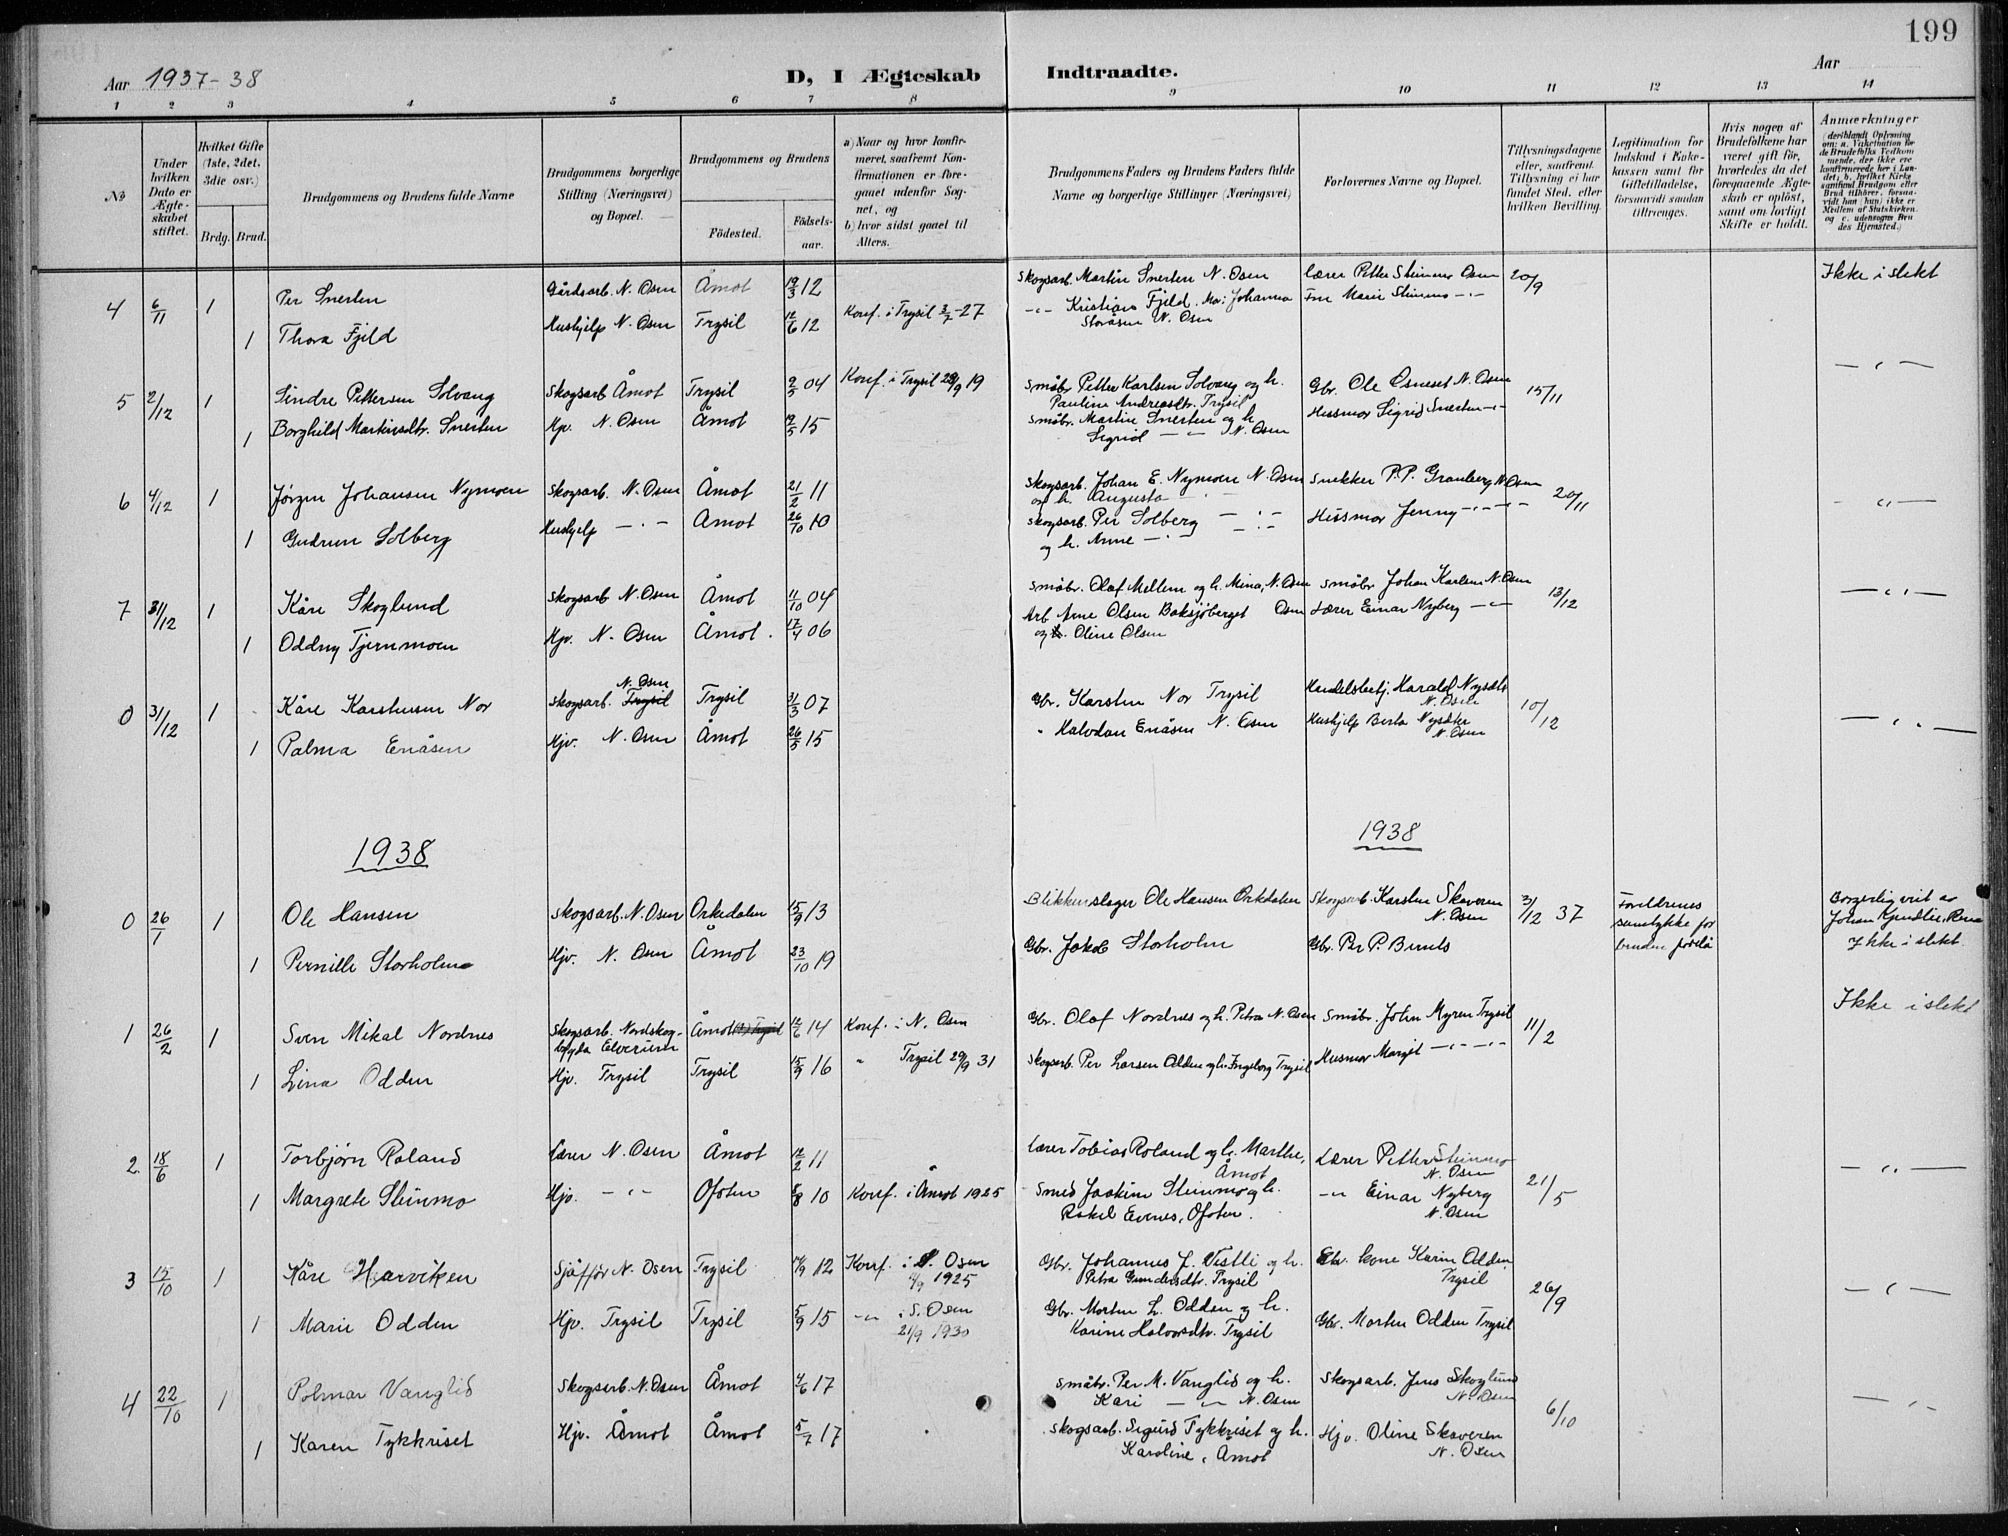 199
Aar 1937-38
D, I Ægteskab Indtraadte.
Aar
1 2 3 4 5 6 7 8 9 10 11 12 13 14
№
Under hvilken Dato er Ægteskabet stiftet.
Hvilket Gifte (1ste, 2det, 3die osv.)
Brdg. Brud.
Brudgommens og Brudens fulde Navne
Brudgommens borgerlige Stilling (Næringsvei) og Bopæl.
Brudgommens og Brudens
Födested.
Födselsaar.
a) Naar og hvor konfirmeret, saafremt Konfirmationen er foregaaet udenfor Sognet, og
b) hvor sidst gaaet til Alters.
Brudgommens Faders og Brudens Faders fulde Navne og borgerlige Stillinger (Næringsvei)
Forlovernes Navne og Bopæl.
Tillysningsdagene eller, saafremt Tillysning ei har fundet Sted, efter hvilken Bevilling.
Legitimation for Indskud i Enkekassen samt for Giftetilladelse, forsaavidt saadan tiltrænges.
Hvis nogen af Brudefolkene har været gift för, hvorledes da det foregaaende Ægteskab er oplöst, samt om lovligt Skifte er holdt.
Anmærkninger (deriblandt Oplysning om: a. Vakcination for de Brudefolks Vedkommende, der ikke ere konfirmerede her i Landet; b. hvilket Kirkesamfund Brudgom eller Brud tilhörer, forsaavidt han (hun) ikke er Medlem af Statskirken, og c. udensogns Brudes Hjemsted.)
4 6/11 1 Per Snerten Gårdsarb. N. Osen Åmot 19/3 12 Skogsarb. Martin Snerten N. Osen Lærer Petter Steinmo Osen 20/9 Ikke i slekt
1 Thora Fjeld Hushjelp N. Osen Trysil 12/6 12 Konf. i Trysil 3/7-27 -"- Kristian Fjeld. Mor: Johanna Storåsen N. Osen Fru Marie Steinmo -"-
5 2/12 1 Sindre Pettersen Solvang Skogsarb Åmot Trysil 2/5 04 Konf. i Trysil 28/9 19 Småbr. Petter Karlsen Solvang og h. Pauline Andreasdtr. Trysil Gbr. Ole Osneset N. Osen 15/11 -"-
1 Borghild Martinsdtr. Snerten Hjv. N. Osen Åmot 19/5 15 Småbr. Martin Snerten og h. Sigrid -"- N. Osen Husmor Sigrid Snerten -"-
6 4/12 1 Jørgen Johansen Nymoen Skogsarb. N. Osen Åmot 21/2 11 Skogsarb. Johan E. Nymoen N. Osen og h. Augusta -"- Snekker P.P. Granberg N. Osen 20/11 -"-
1 Gudrun Solberg Hushjelp -"- Åmot 26/10 10 Skogsarb. Per Solberg -"- og h. Anne -"- Husmor Jenny -"-
7 31/12 1 Kåre Skoglund Skogsarb N. Osen Åmot 11/10 04 Småbr. Olaf Mellem og h. Mina, N. Osen Småbr. Johan Karlsen N. Osen 13/12 -"-
1 Oddny Tjernmoen Hjv. N. Osen Åmot. 17/4 06 Arb Arne Olsen Baksjøberget Osen og h. Oline Olsen Lærer Einar Nyberg -"-
0 31/12 1 Kåre Karstensen Nor Skogsarb. Trysil N. Osen Trysil 31/3 07 Gbr. Karsten Nor Trysil Handelsbetj. Harald Nysæter N. Osen 10/12 -"-
1 Palma Enåsen Hjv. N. Osen Åmot 26/5 15 " Halvdan Enåsen N. Osen Hushjelp Berta Nysæter N. Osen
1938 1938
0 26/1 1 Ole Hansen Skogsarb. N. Osen Orkedalen 15/9 13 Blikkenslager Ole Hansen Orkdalen Skogsarb. Karsten Skaveren N. Osen 3/12 37 Foreldrenes samtykke for bruden forelå Borgerlig viet av Johan Gjendlie, Rena Ikke i slekt
1 Pernille Storholm Hjv. N. Osen Åmot 23/10 19 Gbr. Jakob Storholm Gbr. Per P. Beruls
1 26/2 1 Sven Mikal Nordnes Skogsarb. Nordskogbygda Elverum Åmot 12/6 14 Konf. i N. Osen Gbr. Olof Nordnes og h. Petra N. Osen Småbr. Johan Myren Trysil 11/2 Ikke i slekt
1 Lina Odden Hjv. Trysil Trysil 15/9 16 " Trysil 20/9 31 Skogsarb. Per Larsen Odden og h. Ingeborg Trysil Husmor Margit -"-
2. 18/6 1 Torbjørn Roland Lærer N. Osen Åmot 12/2 11 Lærer Tobias Roland og h. Marthe, Åmot Lærer Petter Steinmo N. Osen 21/5 -"-
1 Margrete Steinmo Hjv. -"- Ofoten 8/8 10 Konf. i Åmot 1925 Smed Joakim Steinmo og h. Rakel Evenes, Ofoten. -"- Einar Nyberg N. Osen
3 15/10 1 Kåre Harviken Sjåffør N. Osen Trysil 14/9 12 Konf. i S. Osen 4/9 1925 Gbr. Johannes J. Vestli og h. Petra Gundersdtr. Trysil Gbr. kone Karin Odden, Trysil 26/9 -"-
1 Marie Odden Hjv. Trysil Trysil 5/9 15 -"- i S. Osen 21/9 1930 Gbr. Morten L. Odden og h. Karine Halvorsdtr. Trysil Gbr. Morten Odden Trysil
4 22/10 1 Polmar Vanglid Skogsarb. N. Osen Åmot 4/6 17 Småbr. Per M. Vanglid og h. Kari -"- N. Osen Skogsarb. Jens Skoglund N. Osen 6/10 -"-
1 Karen Tykkriset Hjv. Åmot Åmot 5/7 17 Skogsarb. Sigurd Tykkriset og h. Karoline, Åmot Hjv. Oline Skaveren N. Osen